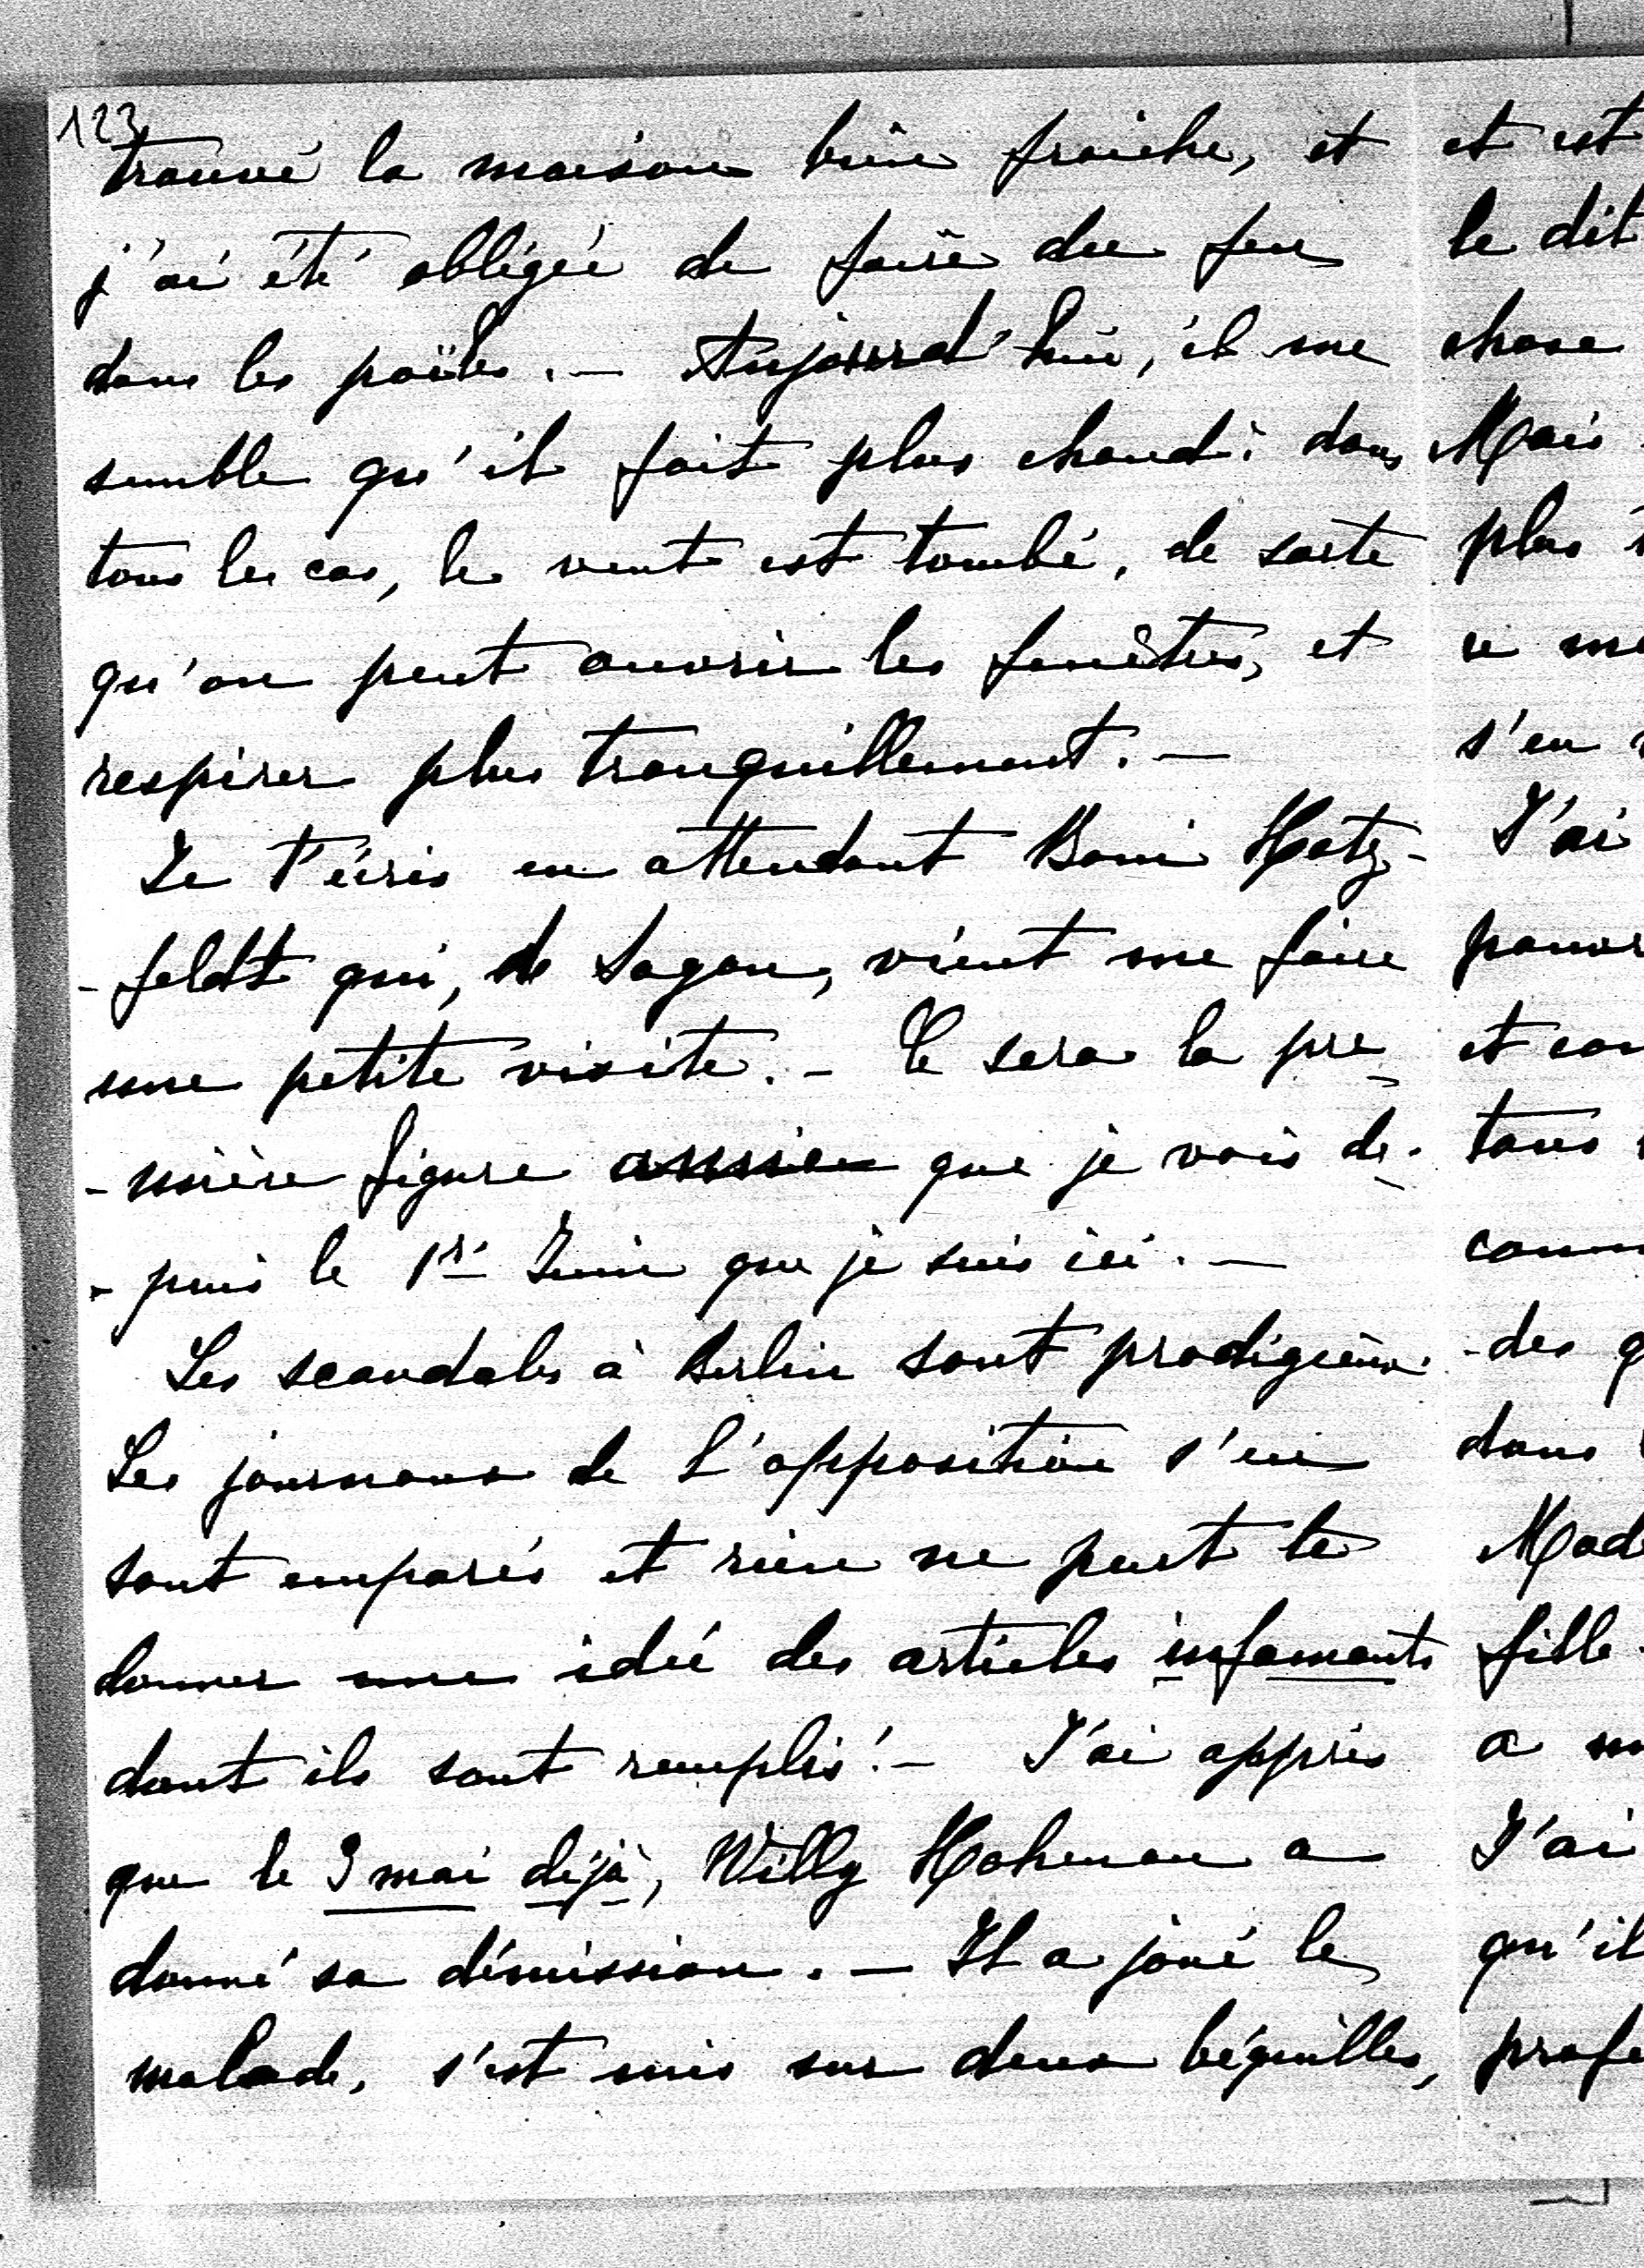 123
trouvé la maison bien fraiche, et
j'ai été obligée de faire du feu
dans les poëles. — Aujourd'hui, il me
semble qu'il fait plus chaud: dans
tous les cas, le vent est tombé, de sorte
qu'on peut ouvrir les fenêtres, et
respirer plus tranquillement. —
Je t'écris en attendant Boni Hatz-
-feldt qui, de Sagan, vient me faire
une petite visite. — Ce sera la pre
-mière figure amie que je vois de-
-puis le 1er Juin que je suis ici. —
Les scandales à Berlin sont prodigieux.
Les journaux de l'opposition s'en
sont emparés et rien ne peut te
donner une idée des articles infamants
dont ils sont remplis! — J'ai appris
que le 3 mai déjà, Willy Hohenau a
donné sa démission. — Il a joué le
malade, s'est mis sur deux béquilles,
et est
le dit
chose
Mais
plus
se me
s'en
J'ai
pauvr
et con
tous
comm
-des q
dans
Made
fille
a m
J'ai
qu'il
profe